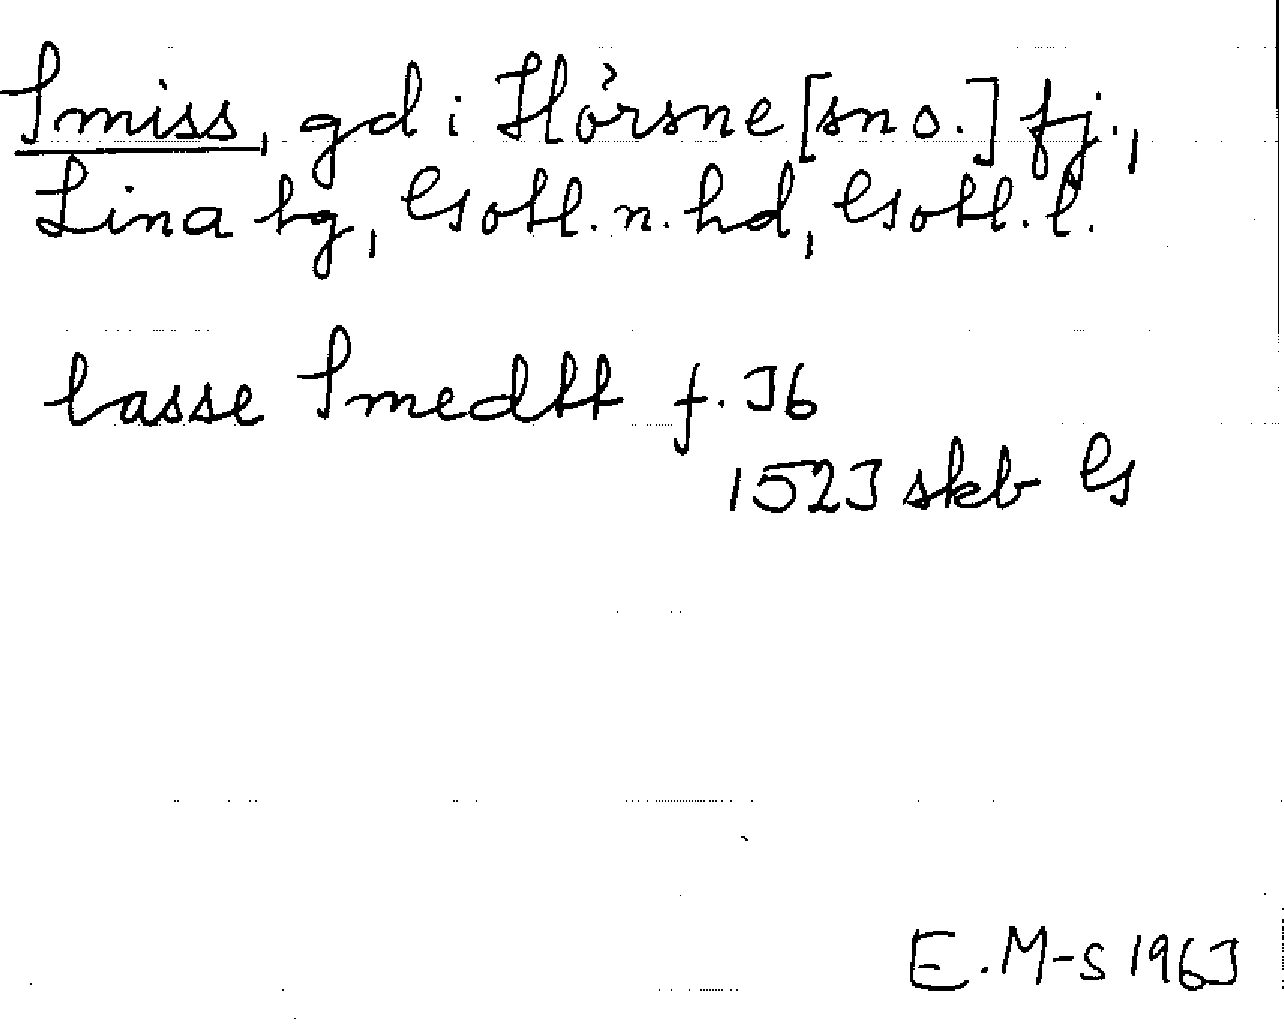 Smiss, gd i Hörsne [sn o.] fj.,
Lina tg, Gotl. n. hd, Gotl. l.
lasse Smedtt f. 36
1523 skb G
E. M-s 1963